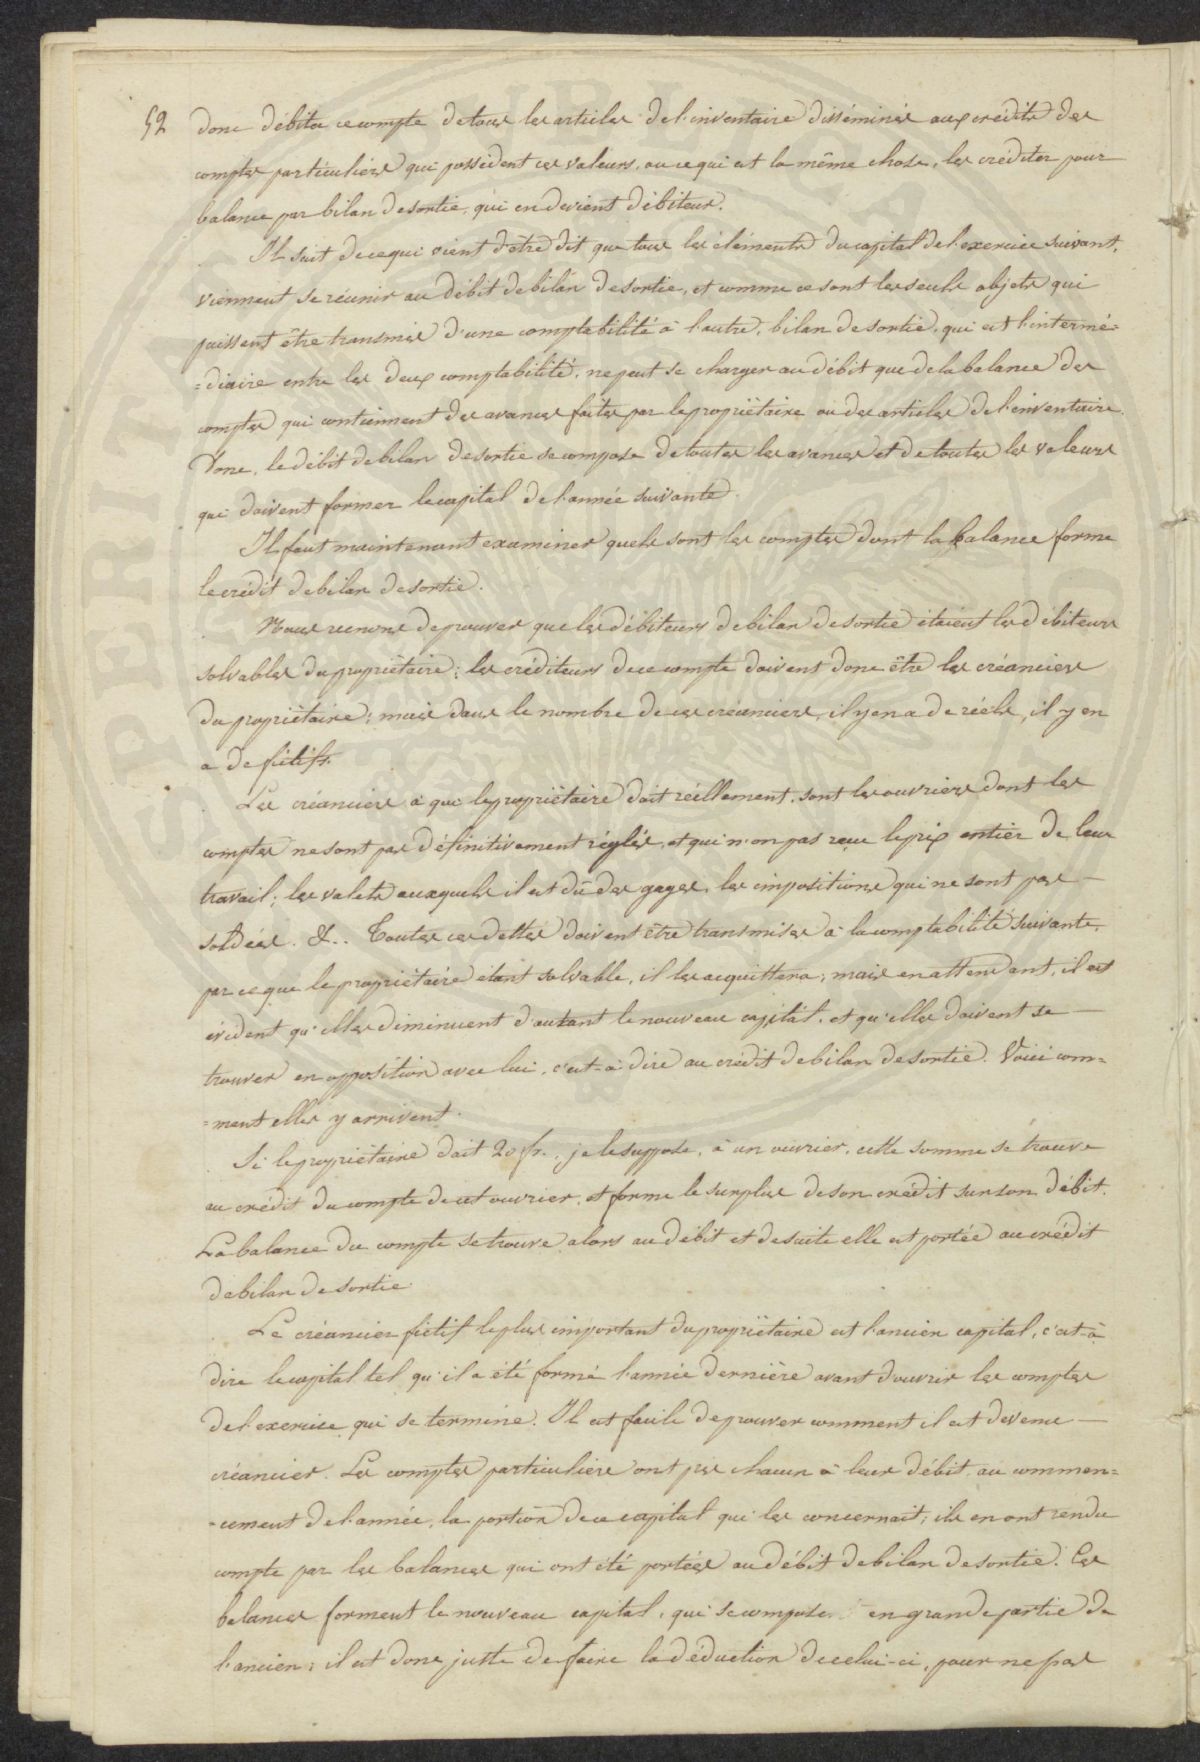 52
donc débiter ce compte de tous les articles de l'inventaire disséminés aux crédits des
comptes particuliers qui possèdent ces valeurs, ou ce qui est la même chose, les créditer pour
balance par bilan de sortie, qui en devient débiteur.
Il suit de ce qui vient d'être dit que tous les éléments du capital de l'exercice suivant,
viennent se réunir au débit de bilan de sortie, et comme ce sont les seuls objets qui
puissent être transmis d'une comptabilité à l'autre, bilan de sortie, qui est l'intermé=
=diaire entre les deux comptabilités, ne peut se charger au débit que de la balance des
comptes qui contiennent des avances faites par le propriétaire ou des articles de l'inventaire.
Donc, le débit de bilan de sortie se compose de toutes les avances et de toutes les valeurs
qui doivent former le capital de l'année suivante.
Il faut maintenant examiner quels sont les comptes dont la balance forme
le crédit de bilan de sortie.
Nous venons de prouver que les débiteurs de bilan de sortie étaient les débiteurs
solvables du propriétaire; les créditeurs de ce compte doivent donc être les créanciers
du propriétaire; mais dans le nombre de ces créanciers, il y en a de réels, il y en
a de fictifs.
Les créanciers à qui le propriétaire doit réellement, sont les ouvriers dont les
comptes ne sont pas définitivement réglés, et qui n'on pas reçu le prix entier de leur
travail; les valets auxquels il est dû des gages, les impositions qui ne sont pas
soldées. &.. Toutes ces dettes doivent être transmises à la comptabilité suivante,
par ce que le propriétaire étant solvable, il les acquittera; mais en attendant, il est
évident qu'elles diminuent d'autant le nouveau capital, et qu'elles doivent se
trouver en opposition avec lui, c'est-à dire au crédit de bilan de sortie. Voici com=
=ment elles y arrivent.
Si le propriétaire doit 20 fr., je le suppose, à un ouvrier, cette somme se trouve
au crédit du compte de cet ouvrier, et forme le surplus de son crédit sur son débit.
La balance du compte se trouve alors au débit et de suite elle est portée au crédit
de bilan de sortie.
Le créancier fictif le plus important du propriétaire est l'ancien capital, c'est-à
dire le capital tel qu'il a été formé l'année dernière avant d'ouvrir les comptes
de l'exercice qui se termine. Il est facile de prouver comment il est devenu
créancier. Les comptes particuliers ont pris chacun à leur débit, au commen=
=cement de l'année, la portion de ce capital qui les concernait; ils en ont rendu
compte par les balances qui ont été portées au débit de bilan de sortie. Ces
balances forment le nouveau capital, qui se compose en grande partie de
l'ancien; il est donc juste de faire la déduction de celui-ci, pour ne pas